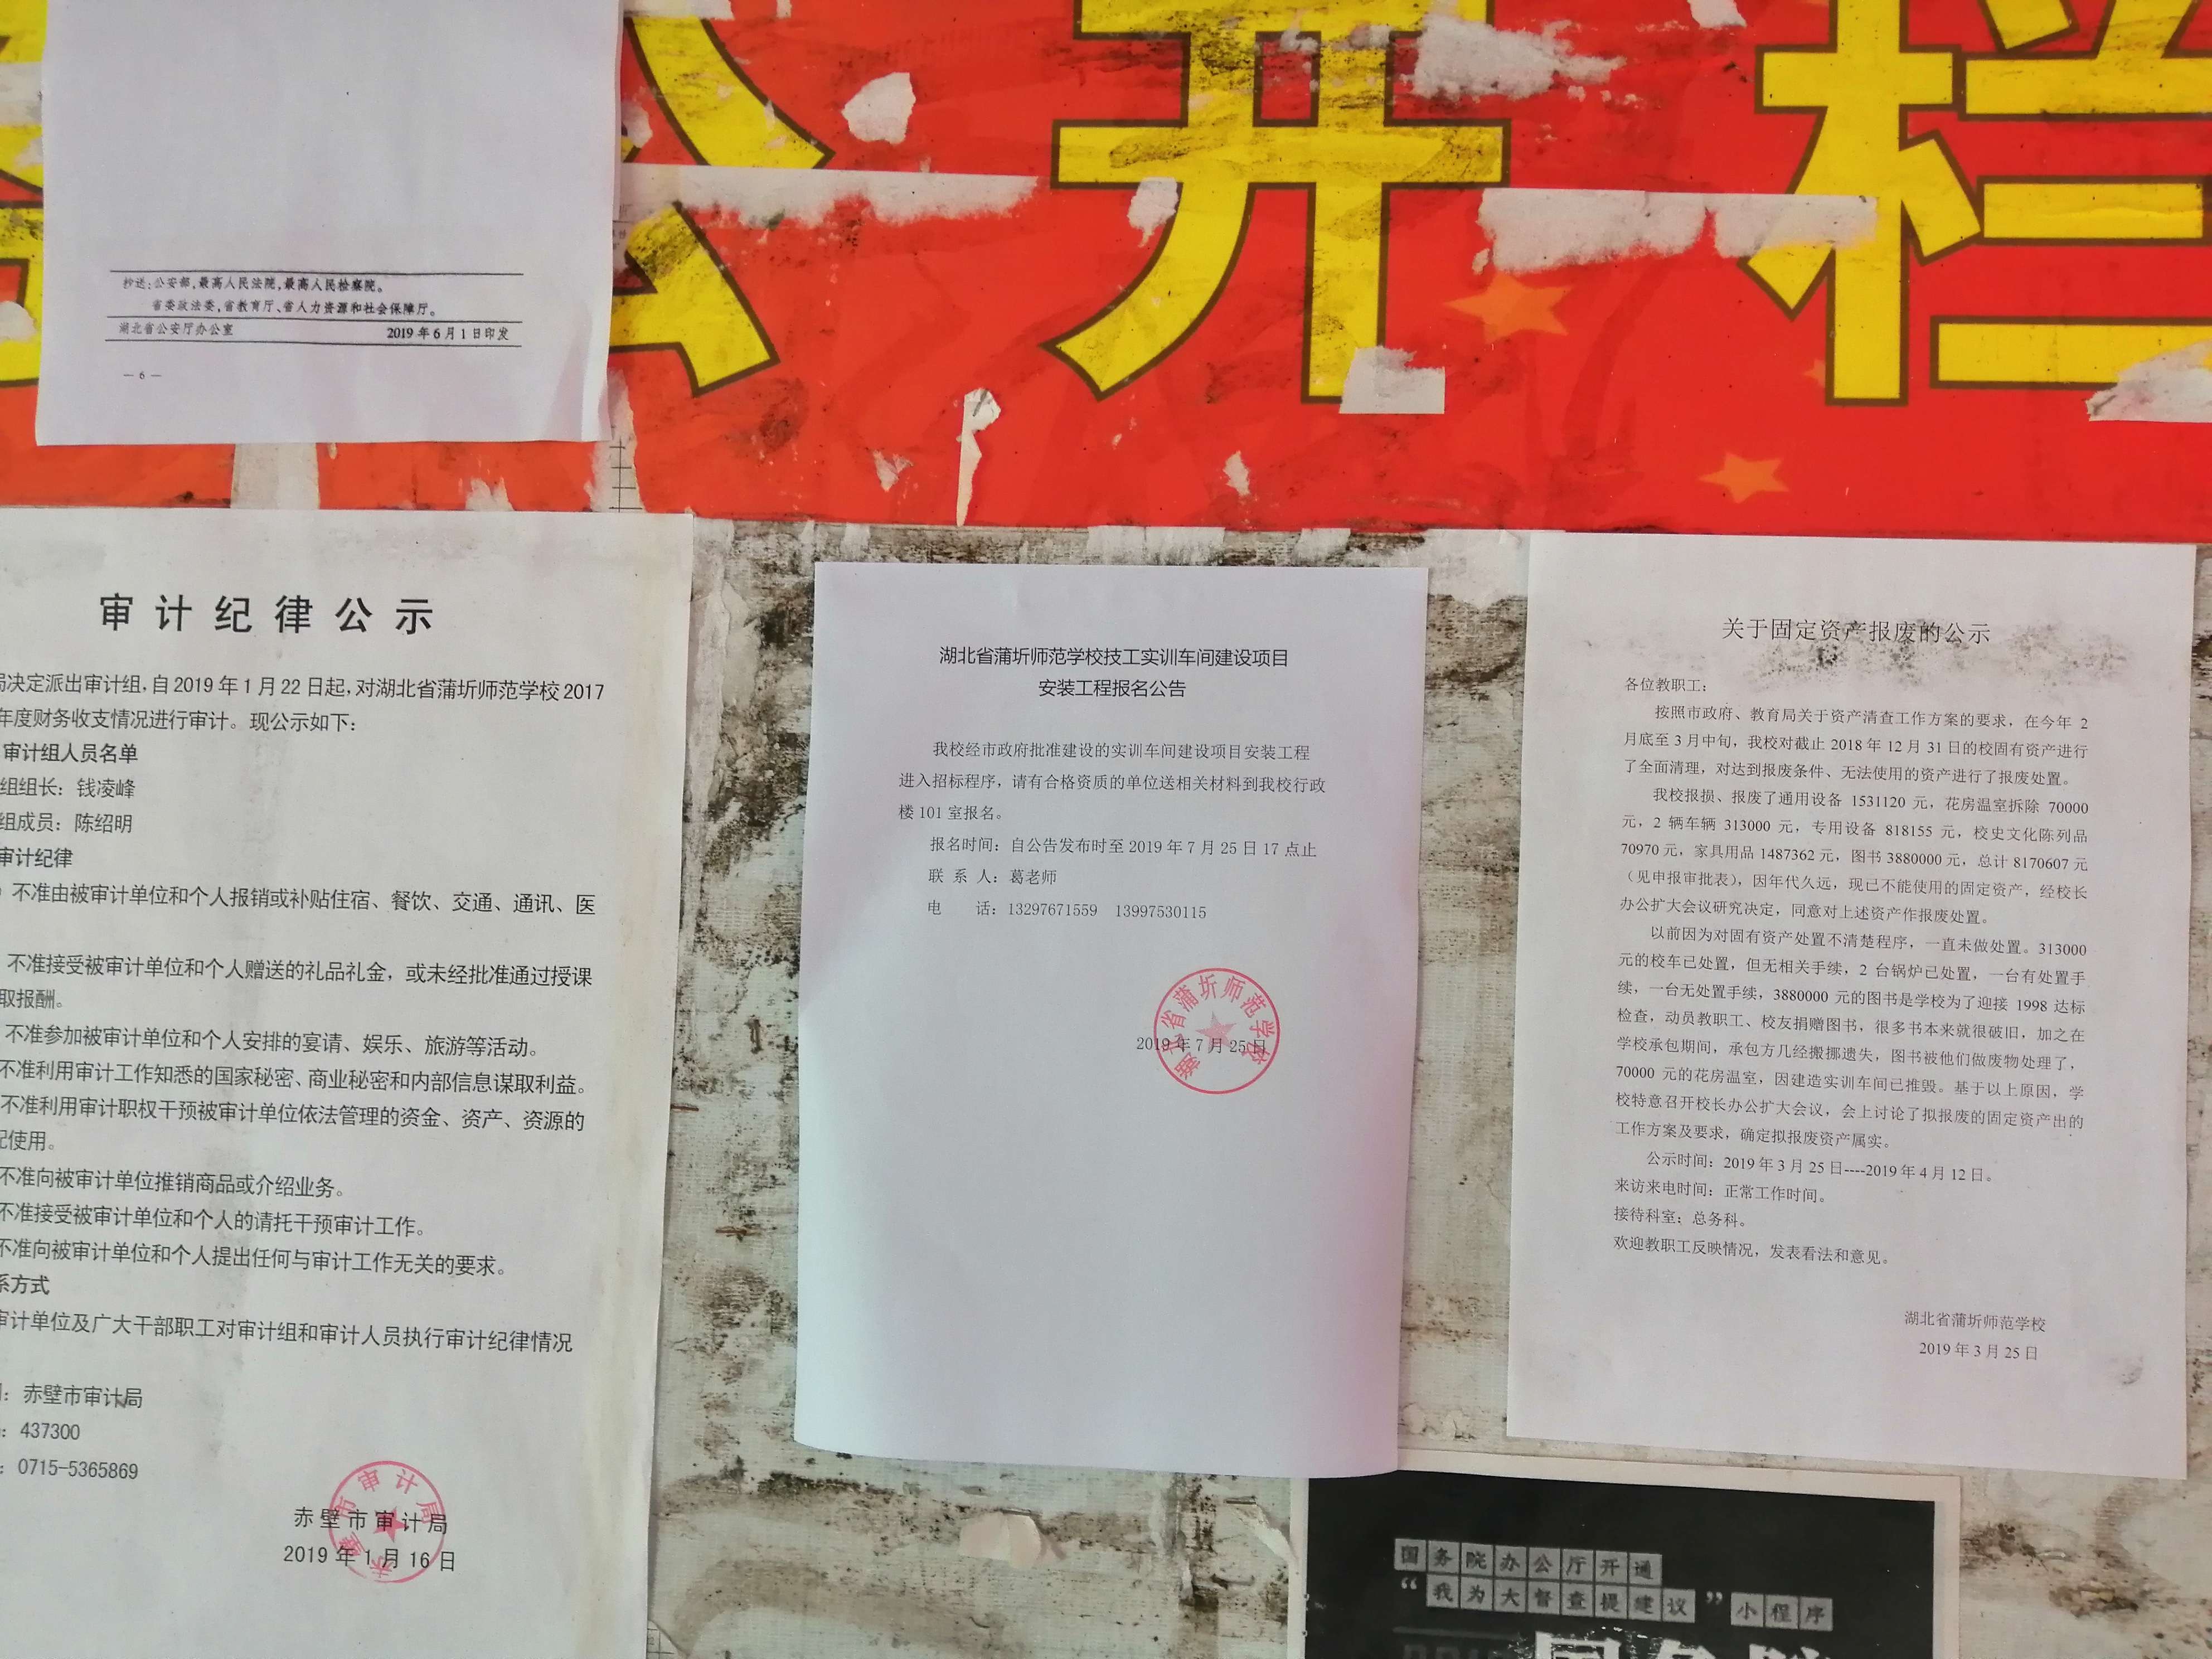 公开栏
抄送:公安部,最高人民法院,最高人民检察院。
省委政法委,省教育厅、省人力资源和社会保障厅。
湖北省公安厅办公室 2019年6月1日印发
— 6 —
审计纪律公示
局决定派出审计组,自2019年1月22日起,对湖北省蒲圻师范学校2017
年度财务收支情况进行审计。现公示如下:
审计组人员名单
组组长:钱凌峰
组成员:陈绍明
审计纪律
不准由被审计单位和个人报销或补贴住宿、餐饮、交通、通讯、医
不准接受被审计单位和个人赠送的礼品礼金,或未经批准通过授课
取报酬。
不准参加被审计单位和个人安排的宴请、娱乐、旅游等活动。
不准利用审计工作知悉的国家秘密、商业秘密和内部信息谋取利益。
不准利用审计职权干预被审计单位依法管理的资金、资产、资源的
配使用。
不准向被审计单位推销商品或介绍业务。
不准接受被审计单位和个人的请托干预审计工作。
不准向被审计单位和个人提出任何与审计工作无关的要求。
系方式
审计单位及广大干部职工对审计组和审计人员执行审计纪律情况
:赤壁市审计局
:437300
:0715-5365869
赤壁市审计局
2019年1月16日
赤壁市审计局
湖北省蒲圻师范学校技工实训车间建设项目
安装工程报名公告
我校经市政府批准建设的实训车间建设项目安装工程
进入招标程序,请有合格资质的单位送相关材料到我校行政
楼101室报名。
报名时间:自公告发布时至2019年7月25日17点止
联 系 人:葛老师
电 话:13297671559 13997530115
湖北省蒲圻师范学校
2019年7月25日
关于固定资产报废的公示
各位教职工:
按照市政府、教育局关于资产清查工作方案的要求,在今年 2
月底至3月中旬,我校对截止2018年12月31日的校固有资产进行
了全面清理,对达到报废条件、无法使用的资产进行了报废处置。
我校报损、报废了通用设备 1531120 元,花房温室拆除 70000
元,2 辆车辆 313000 元,专用设备 818155 元,校史文化陈列品
70970元,家具用品1487362元,图书3880000元,总计8170607元
(见申报审批表),因年代久远,现已不能使用的固定资产,经校长
办公扩大会议研究决定,同意对上述资产作报废处置。
以前因为对固有资产处置不清楚程序,一直未做处置。313000
元的校车已处置,但无相关手续,2 台锅炉已处置,一台有处置手
续,一台无处置手续,3880000 元的图书是学校为了迎接 1998 达标
检查,动员教职工、校友捐赠图书,很多书本来就很破旧,加之在
学校承包期间,承包方几经搬挪遗失,图书被他们做废物处理了,
70000 元的花房温室,因建造实训车间已推毁。基于以上原因,学
校特意召开校长办公扩大会议,会上讨论了拟报废的固定资产出的
工作方案及要求,确定拟报废资产属实。
公示时间:2019年3月25日----2019年4月12日。
来访来电时间:正常工作时间。
接待科室:总务科。
欢迎教职工反映情况,发表看法和意见。
湖北省蒲圻师范学校
2019年3月25日
国务院办公厅开通
“我为大督查提建议”小程序